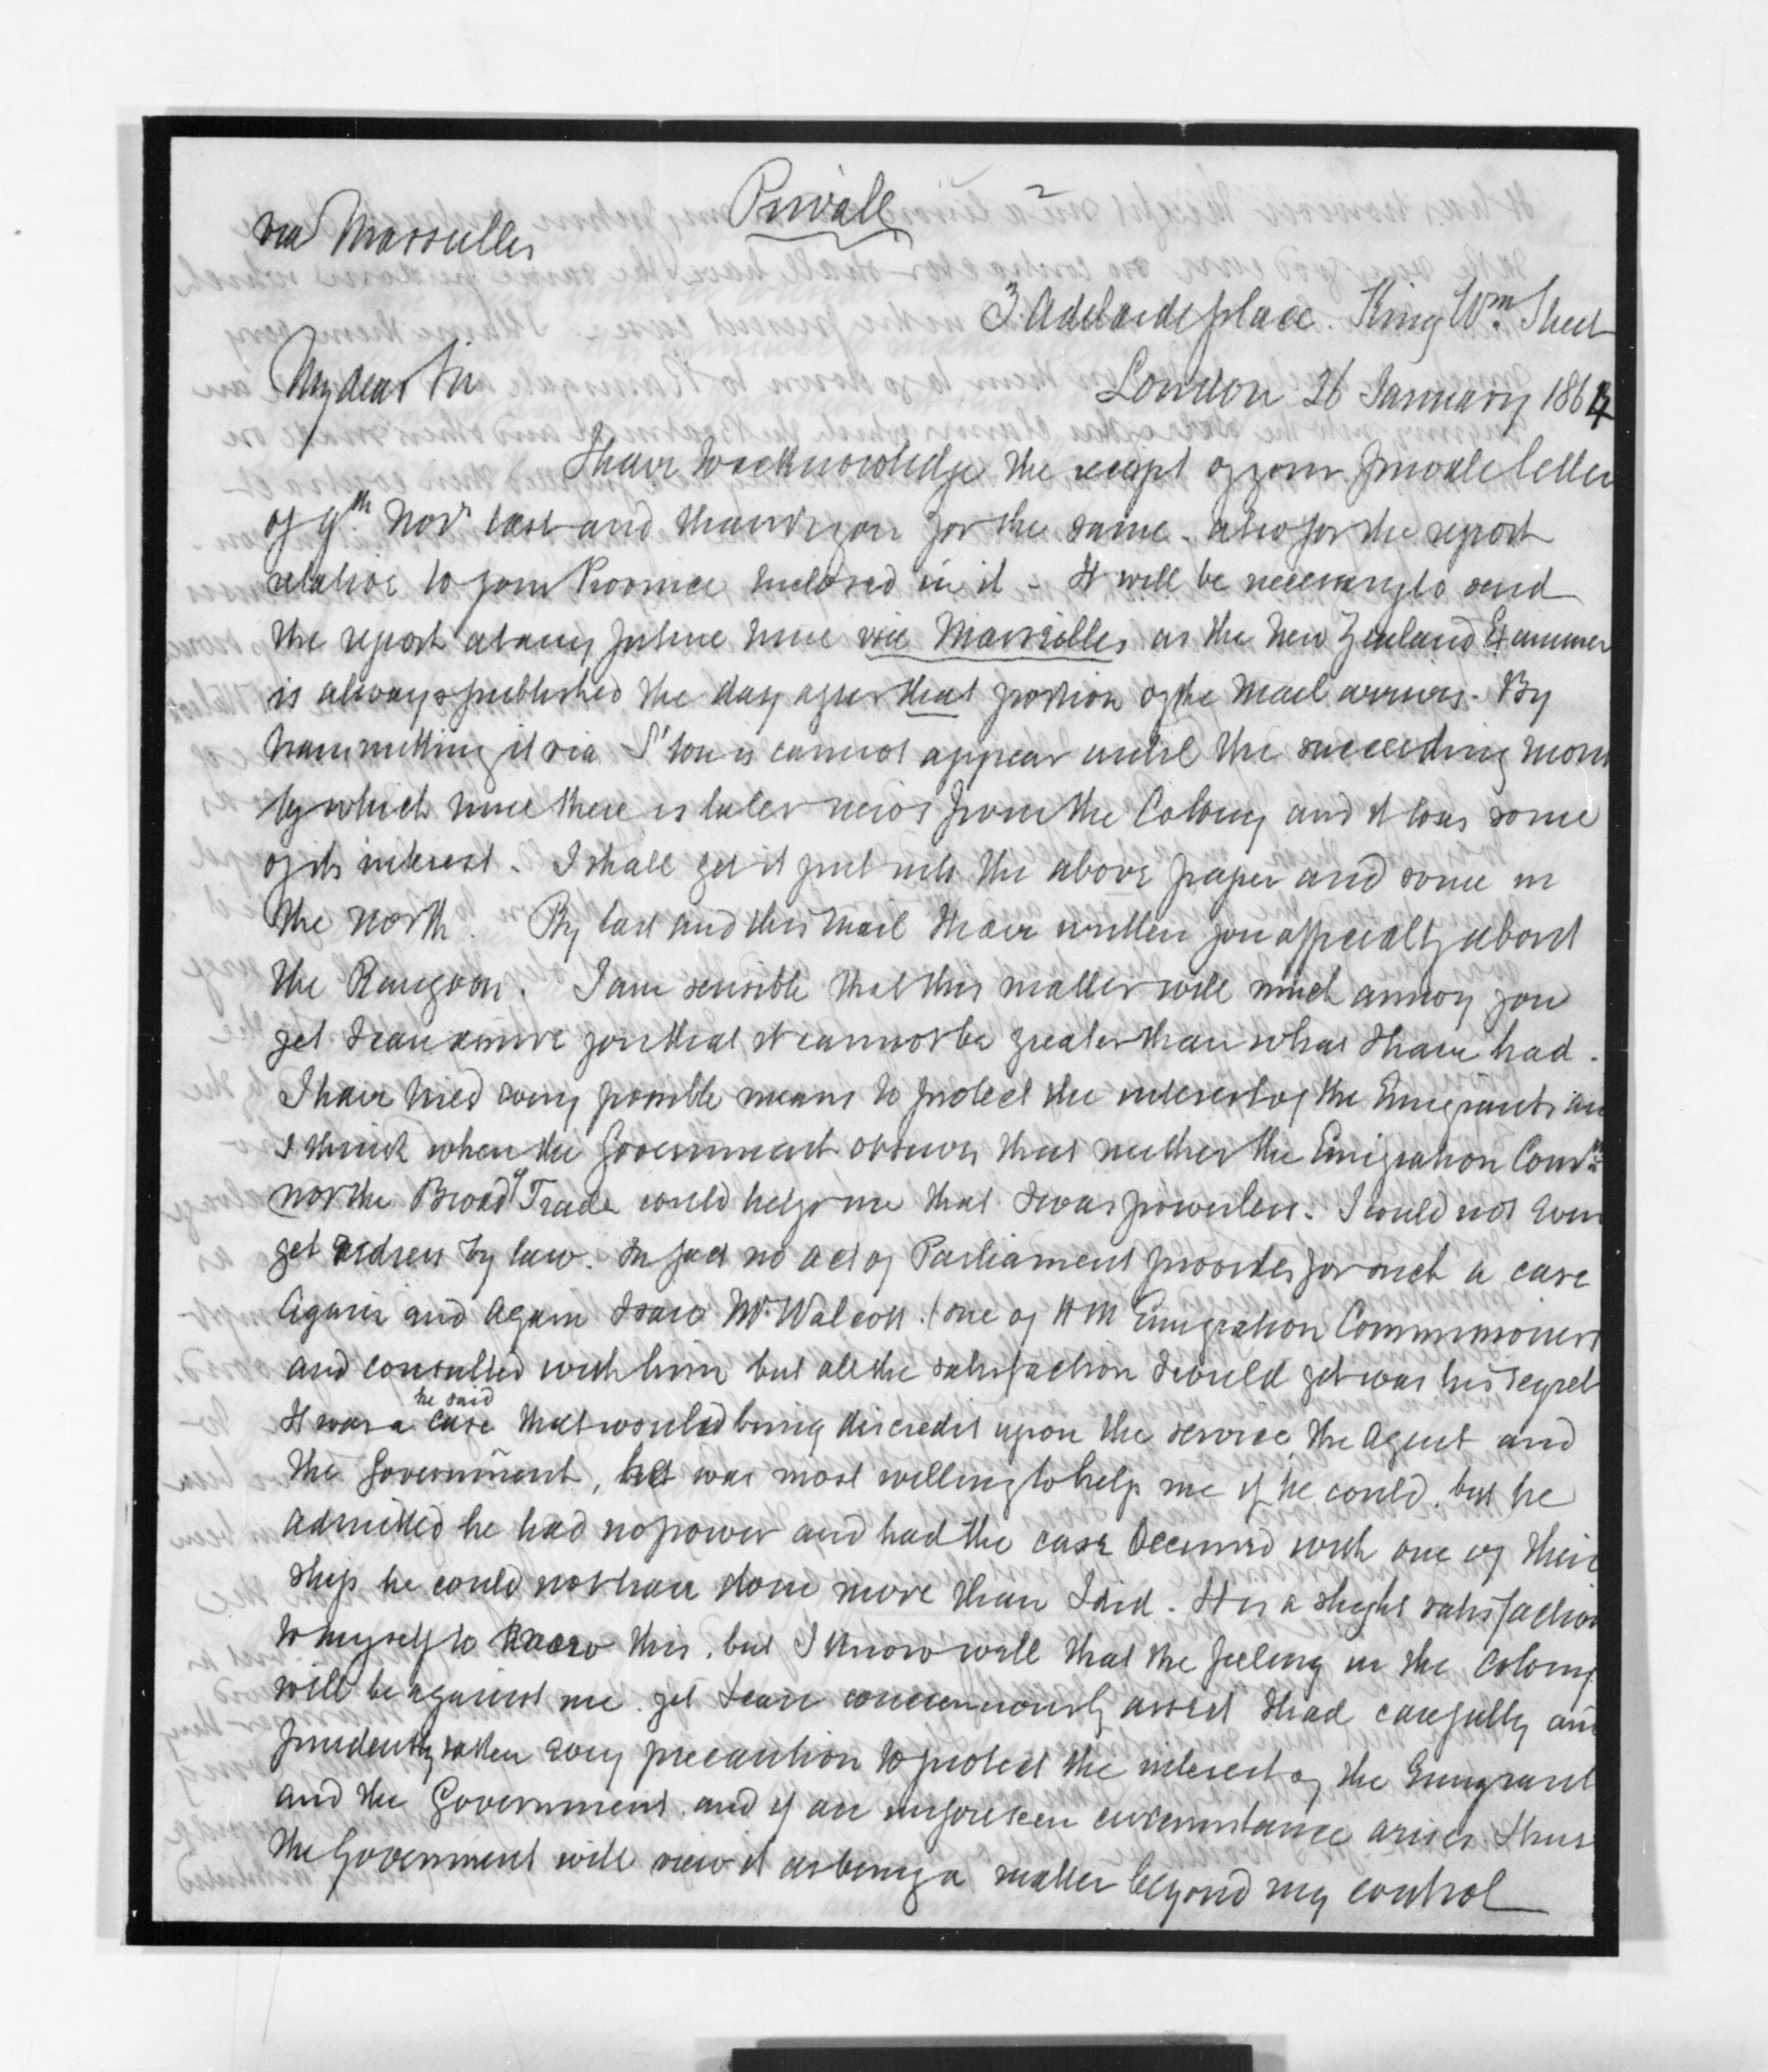 Private
via Marseilles
3 Adelaide place. King Wm. Street
London 26 January 1864
My dear Sir
I have to acknowledge the receipt of your private letter
of 9th Novr last and thank you for the same - also for the report
relative to your Province inclosed in it - It will be necessary to send
the report at any future time via Marseilles as the New Zealand Examiner
is always published the day after that portion of the Mail arrives. By
transmitting it via S'ton it cannot appear until the succeeding mon
by which time there is later news from the Colony and it loses some
of its interest. I shall get it put into the above paper and some in
the North. By last and this Mail I have written you officially about
the Rangoon. I am sensible that this matter will much annoy you
yet I can assure you that it cannot be greater than what I have had.
I have tried every possible means to protect the interest of the Emigrants an
I think when the Government observes that neither the Emigration Comrs
nor the Broad of Trade could help me that I was powerless. I could not even
get redress by law. In fact no act of Parliament provides for such a case
Again and again I saw Mr Walcott. (one of H M Emigration Commissioners
and consulted with him but all the satisfaction I could get was his regret
It was a case he said that would bring discredit upon the service, the Agent and
the Government, he was most willing to help me if he could. but he
admitted he had no power and had the case occurred with one of their
ships he could not have done more than I did. It is a slight satisfaction
to myself to know this. but I know well that the feeling in the Colony
will be against me. yet I can conscienciously assert I had carefully and
prudently taken every precaution to protect the interest of the Emigrant
and the Government. and if an unforeseen circumstance arises I trust
the Government will view it as being a matter beyond my control